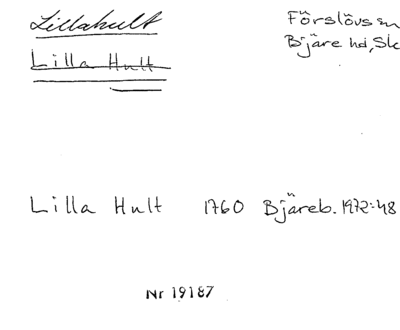 Lillahult
Förslövs sn
Lilla Hult
Bjäre hd, Sk
Lilla Hult 1760 Bjäreb. 1972:48
Nr 19187